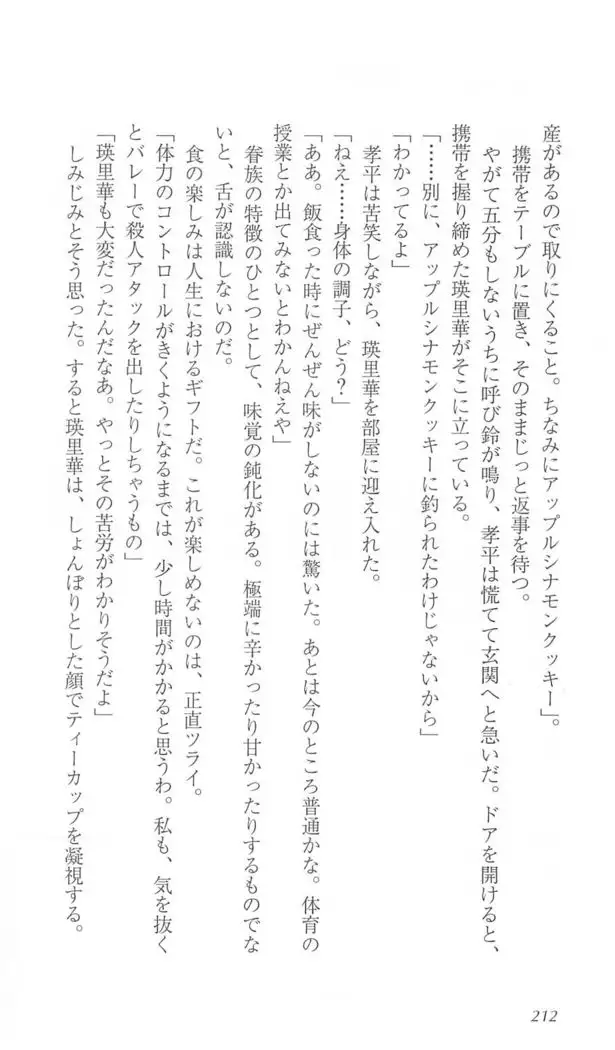 産があるので取りにくること。ちなみにアップルシナモンクッキー」。
　携帯をテーブルに置き、そのままじっと返事を待つ。
　やがて五分もしないうちに呼び鈴が鳴り、孝平は慌てて玄関へと急いだ。ドアを開けると、
携帯を握り締めた瑛里華がそこに立っている。
「……別に、アップルシナモンクッキーに釣られたわけじゃないから」
「わかってるよ」
　孝平は苦笑しながら、瑛里華を部屋に迎え入れた。
「ねえ……身体の調子、どう？」
「ああ。飯食った時にぜんぜん味がしないのには驚いた。あとは今のところ普通かな。体育の
授業とか出てみないとわかんねえや」
　眷族の特徴のひとつとして、味覚の鈍化がある。極端に辛かったり甘かったりするものでな
いと、舌が認識しないのだ。
　食の楽しみは人生におけるギフトだ。これが楽しめないのは、正直ツライ。
「体力のコントロールがきくようになるまでは、少し時間がかかると思うわ。私も、気を抜く
とバレーで殺人アタックを出したりしちゃうもの」
「瑛里華も大変だったんだなあ。やっとその苦労がわかりそうだよ」
　しみじみとそう思った。すると瑛里華は、しょんぼりとした顔でティーカップを凝視する。
212